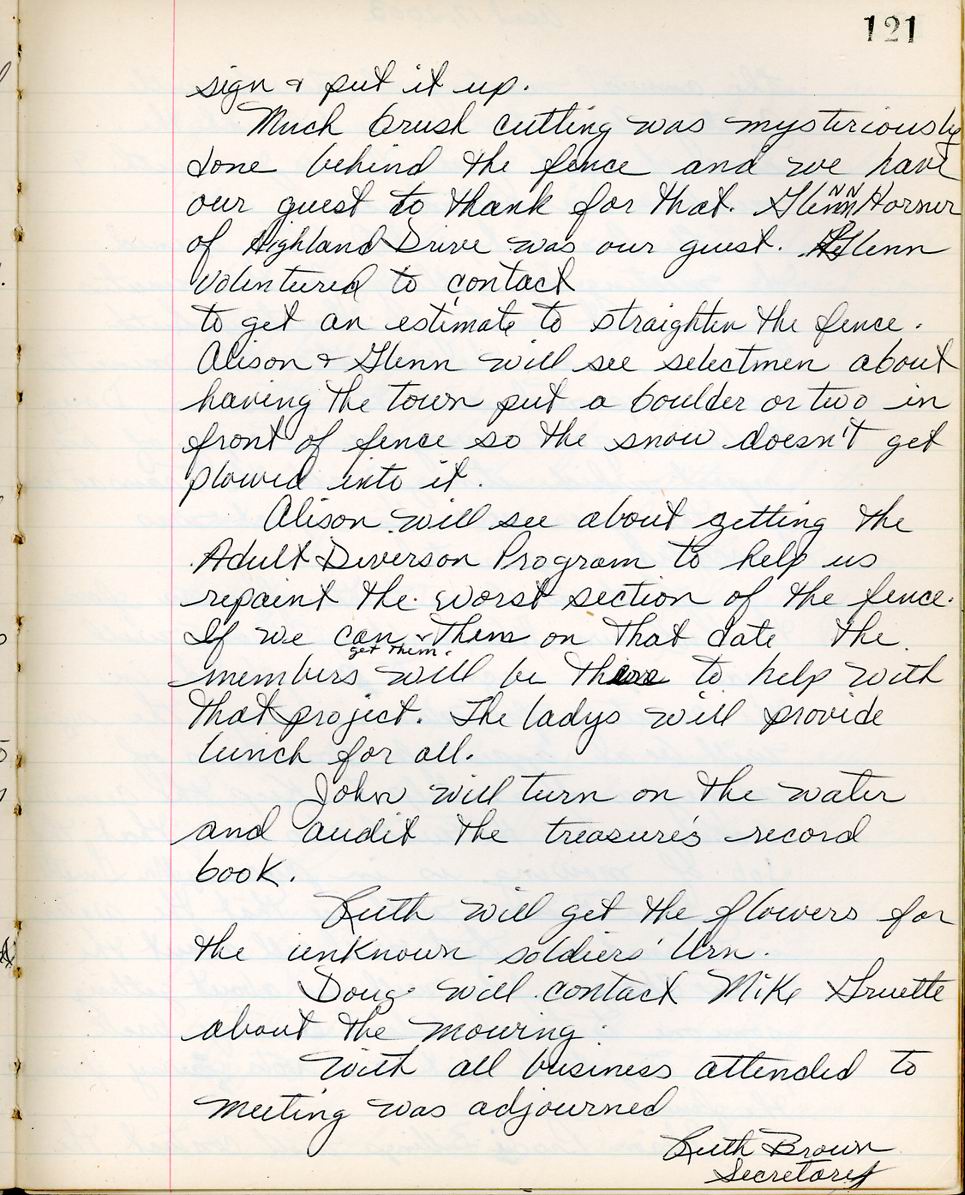 121
sign & put it up.
Much brush cutting was mysteriously
done behind the fence and we have
our guest to thank for that. Glenn Horner
of Highland Drive was our guest. Glenn
volentured to contact
to get an estimate to straighten the fence.
Alison & Glenn will see selectmen about
having the town put a boulder or two in
front of fence so the snow doesn't get
plowed into it.
Alison will see about getting the
Adult Diverson Program to help us
repaint the worst section of the fence.
If we can get them on that date the
members will be there to help with
that project. The ladys will provide
lunch for all.
John will turn on the water
and audit the treasure's record
book.
Ruth will get the flowers for
the unknown soldiers' Urn.
Doug will contact Mike Gruette
about the mowing.
With all business attended to
meeting was adjourned
Ruth Brown
Secretary